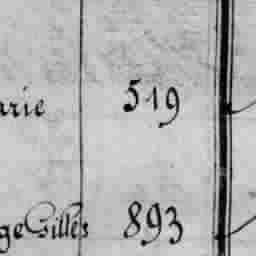 arie 519
ge Gilles 893